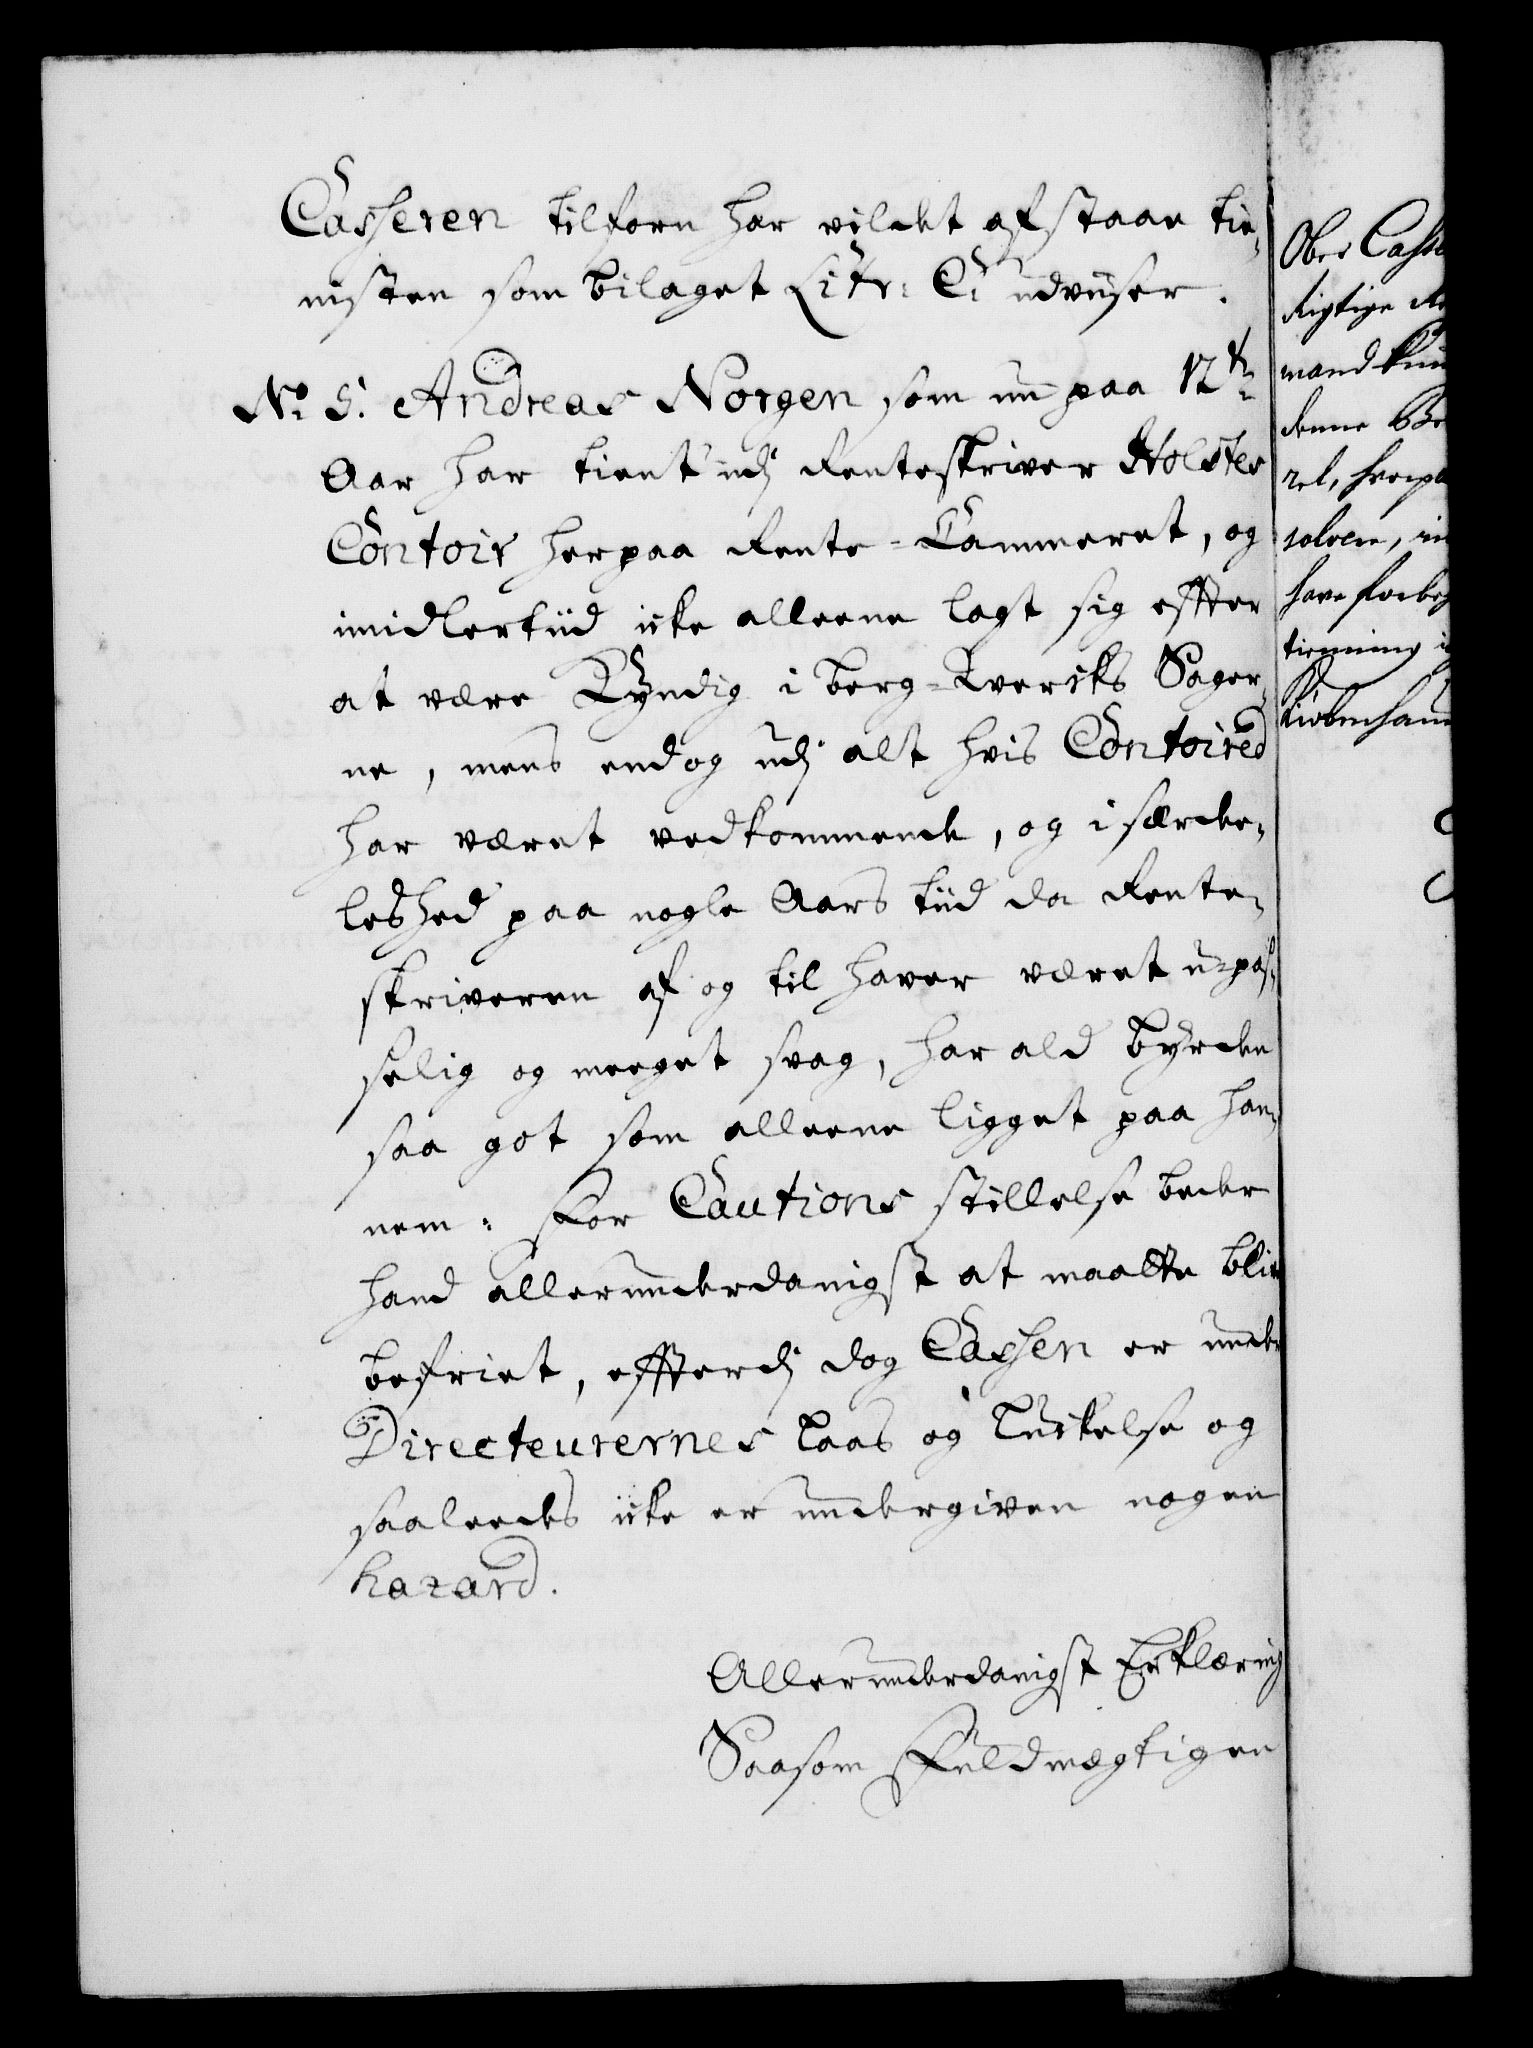 Casseren tilforn har vildet afstaae tie¬
nisten som bilaget Litr: C: udviiser.
No. 5. Andreas Norgen som nu paa 12te
Aar har tient udj Renteskriver Holstes
Contoir her paa Rente-Cammeret, og
imidlertiid icke alleene lagt sig effter
at være Kyndig i berg-Kvercks Sager¬
ne, mens endog udj alt hvis Contoired
har været vedkommende, og i særde¬
leshed paa nogle Aars tiid da Rente¬
skriveren af og til haver været u-pas¬
selig og meeget svag, har ald byrden
saa got som alleene ligget paa han¬
nem: For Cautions stillelse beder
hand allerunderdanigst at maatte bliv
befriet, effterdj dog Cassen er under
Directeurernes laas og luckelse og
saaleedes icke er undergiven nogen
hazard.
Allerunderdanigst Erklæring
Saasom Fuldmægtigen
Ober Casse
Rigtige Re
mand kun
denne Be
rel, hvorpaa
solven, in
have forbe
tienning i
Kiøbenhaun